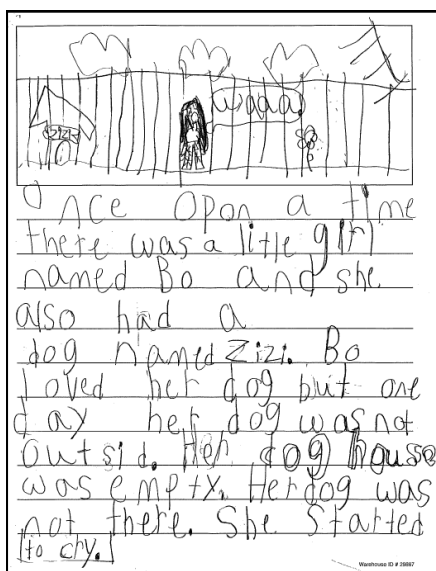 zizi
waaa
Once Opon a time
there was a litle girl
named Bo and she
also had a
dog named Zizi. Bo
loved her dog but one
day her dog was not
outsid. Her dog house
was empty. Her dog was
not there. She Started
to cry.
Warehouse ID # 29897